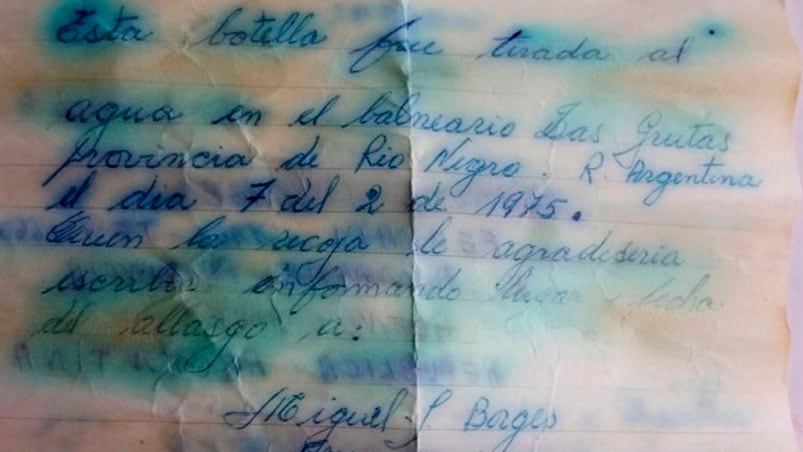 Esta botella fue tirada al
agua en el balneario Las Grutas
provincia de Rio Negro. R. Argentina
el dia 7 del 2 de 1975.
Quien la recoja le agradeseria
escribir informando lugar y fecha
del allasgo a:
Miguel J. Borges